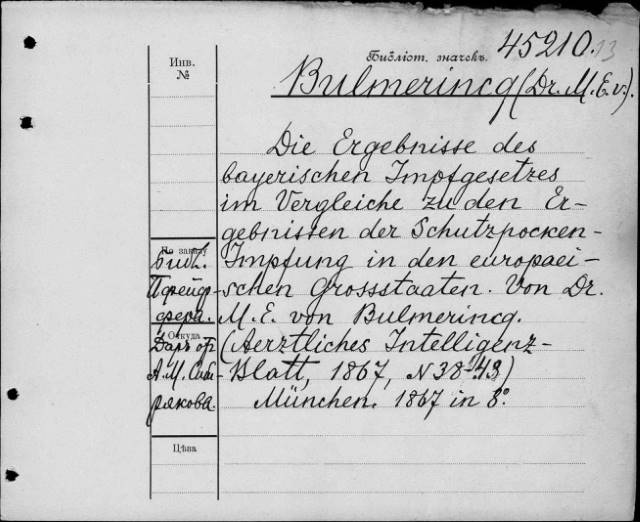 45210.13
Библіот. значокъ.
Инв.
№
Bulmerincq (Dr. M. E. v.).
Die Ergebnisse des
bayerischen Impfgesetzes
im Vergleiche zu den Er-
gebnissen der Schutzpocken-
Impfung in den europaei-
schen Grossstaaten. Von Dr.
M. E. von Bulmerincq.
(Aerztliches Intelligenz-
Blatt, 1867, N 38-43)
München. 1867 in 8°.
По заказу
Библ.
Пфейф-
фера.
Откуда
Даръ отъ
А. М. Саби-
рякова.
Цѣва